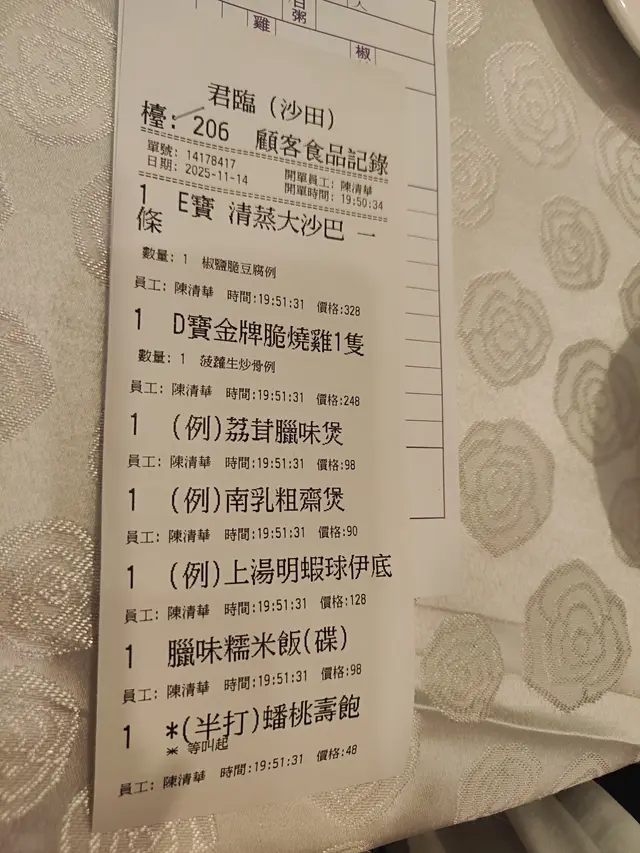 人
白粥
雞
椒
君臨 (沙田)
檯: 206 顧客食品記錄
單號: 14178417 開單員工: 陳清華
日期: 2025-11-14 開單時間: 19:50:34
1 E寶 清蒸大沙巴 一
條
數量: 1 椒鹽脆豆腐例
員工: 陳清華 時間:19:51:31 價格:328
1 D寶金牌脆燒雞1隻
數量: 1 菠蘿生炒骨例
員工: 陳清華 時間:19:51:31 價格:248
1 (例)荔茸臘味煲
員工: 陳清華 時間:19:51:31 價格:98
1 (例)南乳粗齋煲
員工: 陳清華 時間:19:51:31 價格:90
1 (例)上湯明蝦球伊底
員工: 陳清華 時間:19:51:31 價格:128
1 臘味糯米飯(碟)
員工: 陳清華 時間:19:51:31 價格:98
1 *(半打)蟠桃壽飽
* 等叫起
員工: 陳清華 時間:19:51:31 價格:48